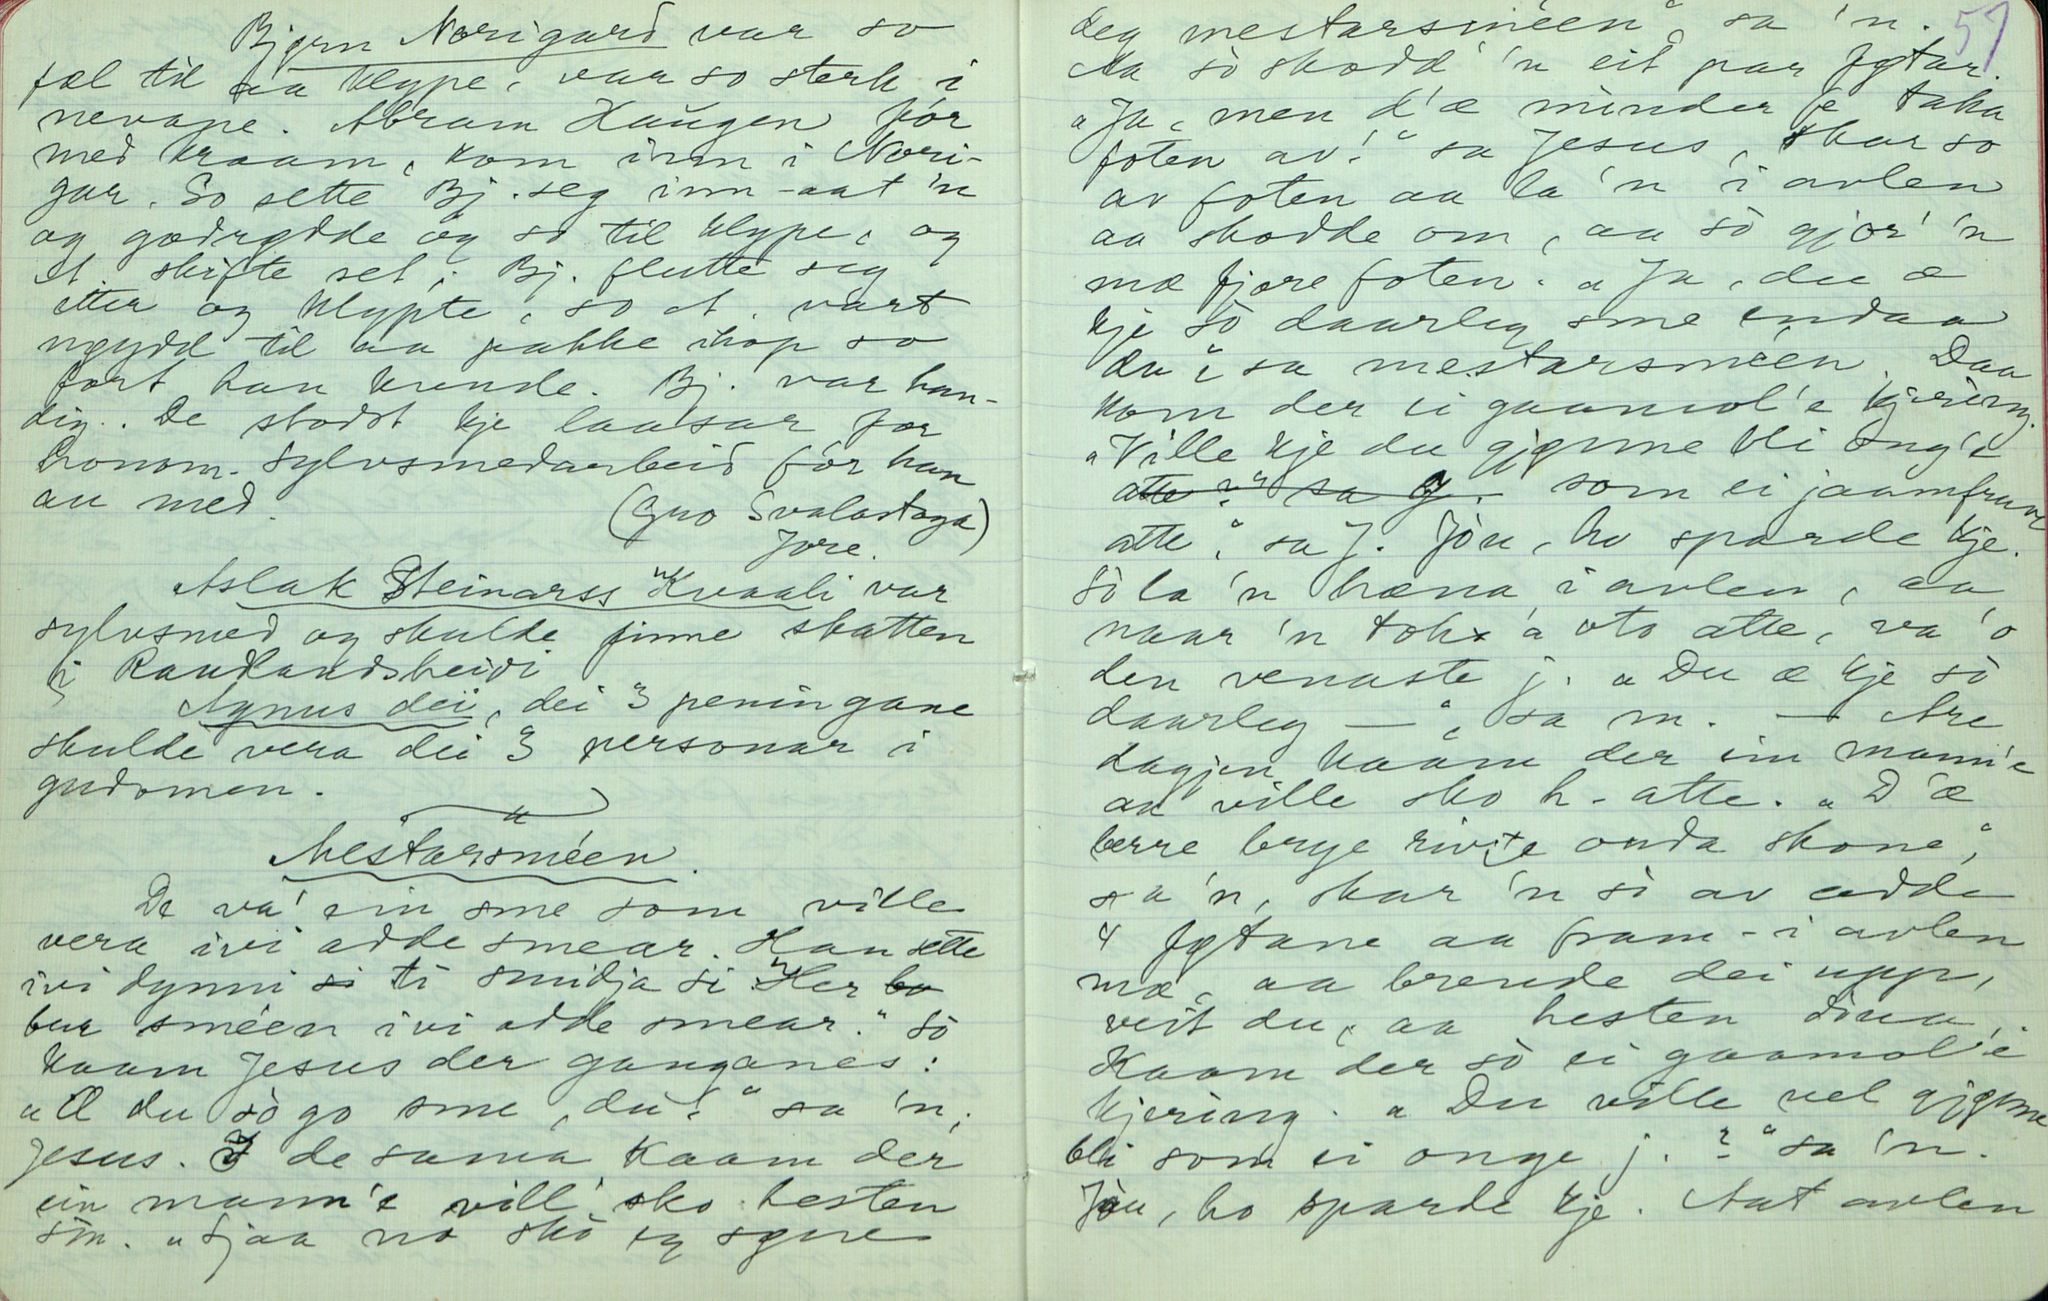 Bjørn Norigard var so
fæl til aa klype, var so sterk i
nevane. Abram Haugen fór
med kraam, kom inn i Nori-
gar. So sette Bj. seg inn-aat 'n
og godrødde og so til klype, og
A. skifte set; Bj. flutte seg
etter og klypte, so A. vart
nøydd til aa pakke ihop so
fort han kunde. Bj. var han-
dig. De stodst kje laasar for
honom. Sylvsmedarbeid fór han
au med.
(Gno Svalastoga)
Jore.
Aslak Steinarss Kvaali var
sylvsmed og skulde finne skatten
i Raudlandsheidi
Agnus dëi, dei 3 peningane
skulde vera dei 3 personar i
gudomen.
Mestarsméen.
De va' ein sme som ville
vera ivi adde smear. Han sette
ivi dynni si ti smidja si "Her bo
bur sméen ivi adde smear." So
kaam Jesus der ganganes:
"Æ du sò go sme, du?" sa 'n,
Jesus. I de sama kaam der
ein mann'e vill' sko hesten
sin. "Sjaa no sko eg syne
57
deg mestarsméen" sa 'n.
Aa sò skodd' 'n eit par føtar.
"Ja, men d'æ minder fe taka
foten av!" sa Jesus, skar so
av foten aa la 'n i avlen
aa skodde om, aa sò gjor' 'n
mæ fjore foten. "Ja, du æ
kje sò daarleg sme endaa
du" sa mestarsméen. Daa
kom der ei gaamol'e kjering.
"Ville kje du gjønne bli ong'e
atte?" sa J. som ei jaamfruve
atte," sa J. Jòu, ho sparde kje.
Sò la 'n hæna i avlen, aa
naar 'n tok 'a oto atte, va 'o
den venaste j. "Du æ kje sò
daarleg —", sa m. — Are
dagjen kaam der ein mann'e
aa ville sko h. atte. "D'æ
berre brye rivite onda skone",
sa 'n, skar 'n sò av adde
4 føtane aa fram-i avlen
mæ, aa brende dei upp,
veit du, aa hesten doua,
Kaam der sò ei gaamol'e
kjering. "Du ville vel gjønne
bli som ei onge j.?" sa 'n.
Jòu, ho sparde kje. Aat avlen